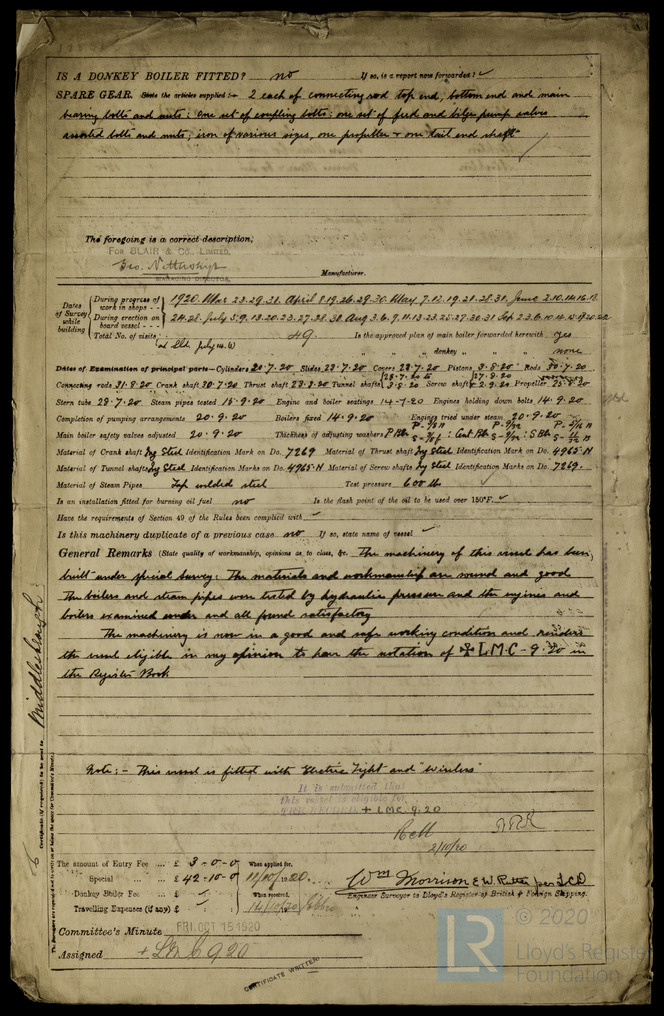 IS A DONKEY BOILER FITTED? no If so, is a report now forwarded? ✓
SPARE GEAR. State the articles supplied:— 2 each of connecting rod top end, bottom end and main
bearing bolts and nuts: One set of coupling bolts: one set of feed and bilge pump valves
assorted bolts and nuts, iron of various sizes, one propeller + one tail end shaft
The foregoing is a correct description,
FOR BLAIR & CO. LIMITED,
Geo.
MANAGING DIRECTOR. Manufacturer.
Dates of Survey while building
During progress of work in shops - - 1920. Mar 23.29.31. April 8.19.26.28.30. May 7.12.19.21.28.31. June 2.10.14.16.18.
During erection on board vessel - - - 24.28. July 5.9.13.20.23.27.28.30. Aug 3.6.9.11.13.23.25.27.30.31 Sep 2.3.6.10.14.15.17.20.22
Total No. of visits 49. Is the approved plan of main boiler forwarded herewith yes
" " " donkey " " " none
Dates of Examination of principal parts—Cylinders 20.7.20 Slides 23.7.20 Covers 23.7.20 Pistons 3.8.20 Rods 30.7.20
Connecting rods 31.8.20 Crank shaft 30.7.20 Thrust shaft 23.7.20 Tunnel shafts 28.7.20 to 3.8.20 Screw shaft 27.8.20 2.9.20 Propeller 25.8.20
Stern tube 28.7.20 Steam pipes tested 15.9.20 Engine and boiler seatings 14-7-20 Engines holding down bolts 14.9.20
Completion of pumping arrangements 20.9.20 Boilers fixed 14.9.20 Engines tried under steam 20.9.20
Main boiler safety valves adjusted 20.9.20 Thickness of adjusting washers
Material of Crank shaft Ing Steel Identification Mark on Do. 7269 Material of Thrust shaft Ing Steel Identification Mark on Do. 4965.N
Material of Tunnel shafts Ing Steel Identification Marks on Do. 4965.N Material of Screw shafts Ing Steel Identification Marks on Do. 7269.
Material of Steam Pipes Lap welded steel Test pressure 600 lb
Is an installation fitted for burning oil fuel no Is the flash point of the oil to be used over 150°F. ✓
Have the requirements of Section 49 of the Rules been complied with ✓
Is this machinery duplicate of a previous case no If so, state name of vessel ✓
General Remarks (State quality of workmanship, opinions as to class, &c. The machinery of this vessel has been
built under special survey: The materials and workmanship are sound and good
The boilers and steam pipes were tested by hydraulic pressure and the engines and
boilers examined under and all found satisfactory
The machinery is now in a good and safe working condition and renders
the vessel eligible in my opinion to have the notation of ✠ L.M.C - 9.20 in
the Register Book
Note:- This vessel is fitted with Electric Light and "Wireless"
It is submitted that
this vessel is eligible for
THE RECORD + LMC. 9.20
2/10/20
The amount of Entry Fee ... £ 3-0-0 When applied for,
Special ... £ 42-10-0 11/10/1920.
Donkey Boiler Fee ... £ ✓ When received,
Travelling Expenses (if any) £ ✓ 14/10/20
Wm Morrison E W per
Engineer Surveyor to Lloyd's Register of British & Foreign Shipping.
Committee's Minute FRI. OCT 15 1920
Assigned + LMC 9.20
CERTIFICATE WRITTEN
Certificate (if required) to be sent to Middlesbrough.
The Surveyors are requested not to write on or below the space for Committee's Minute.
© 2020
LR
Lloyd's Register
Foundation